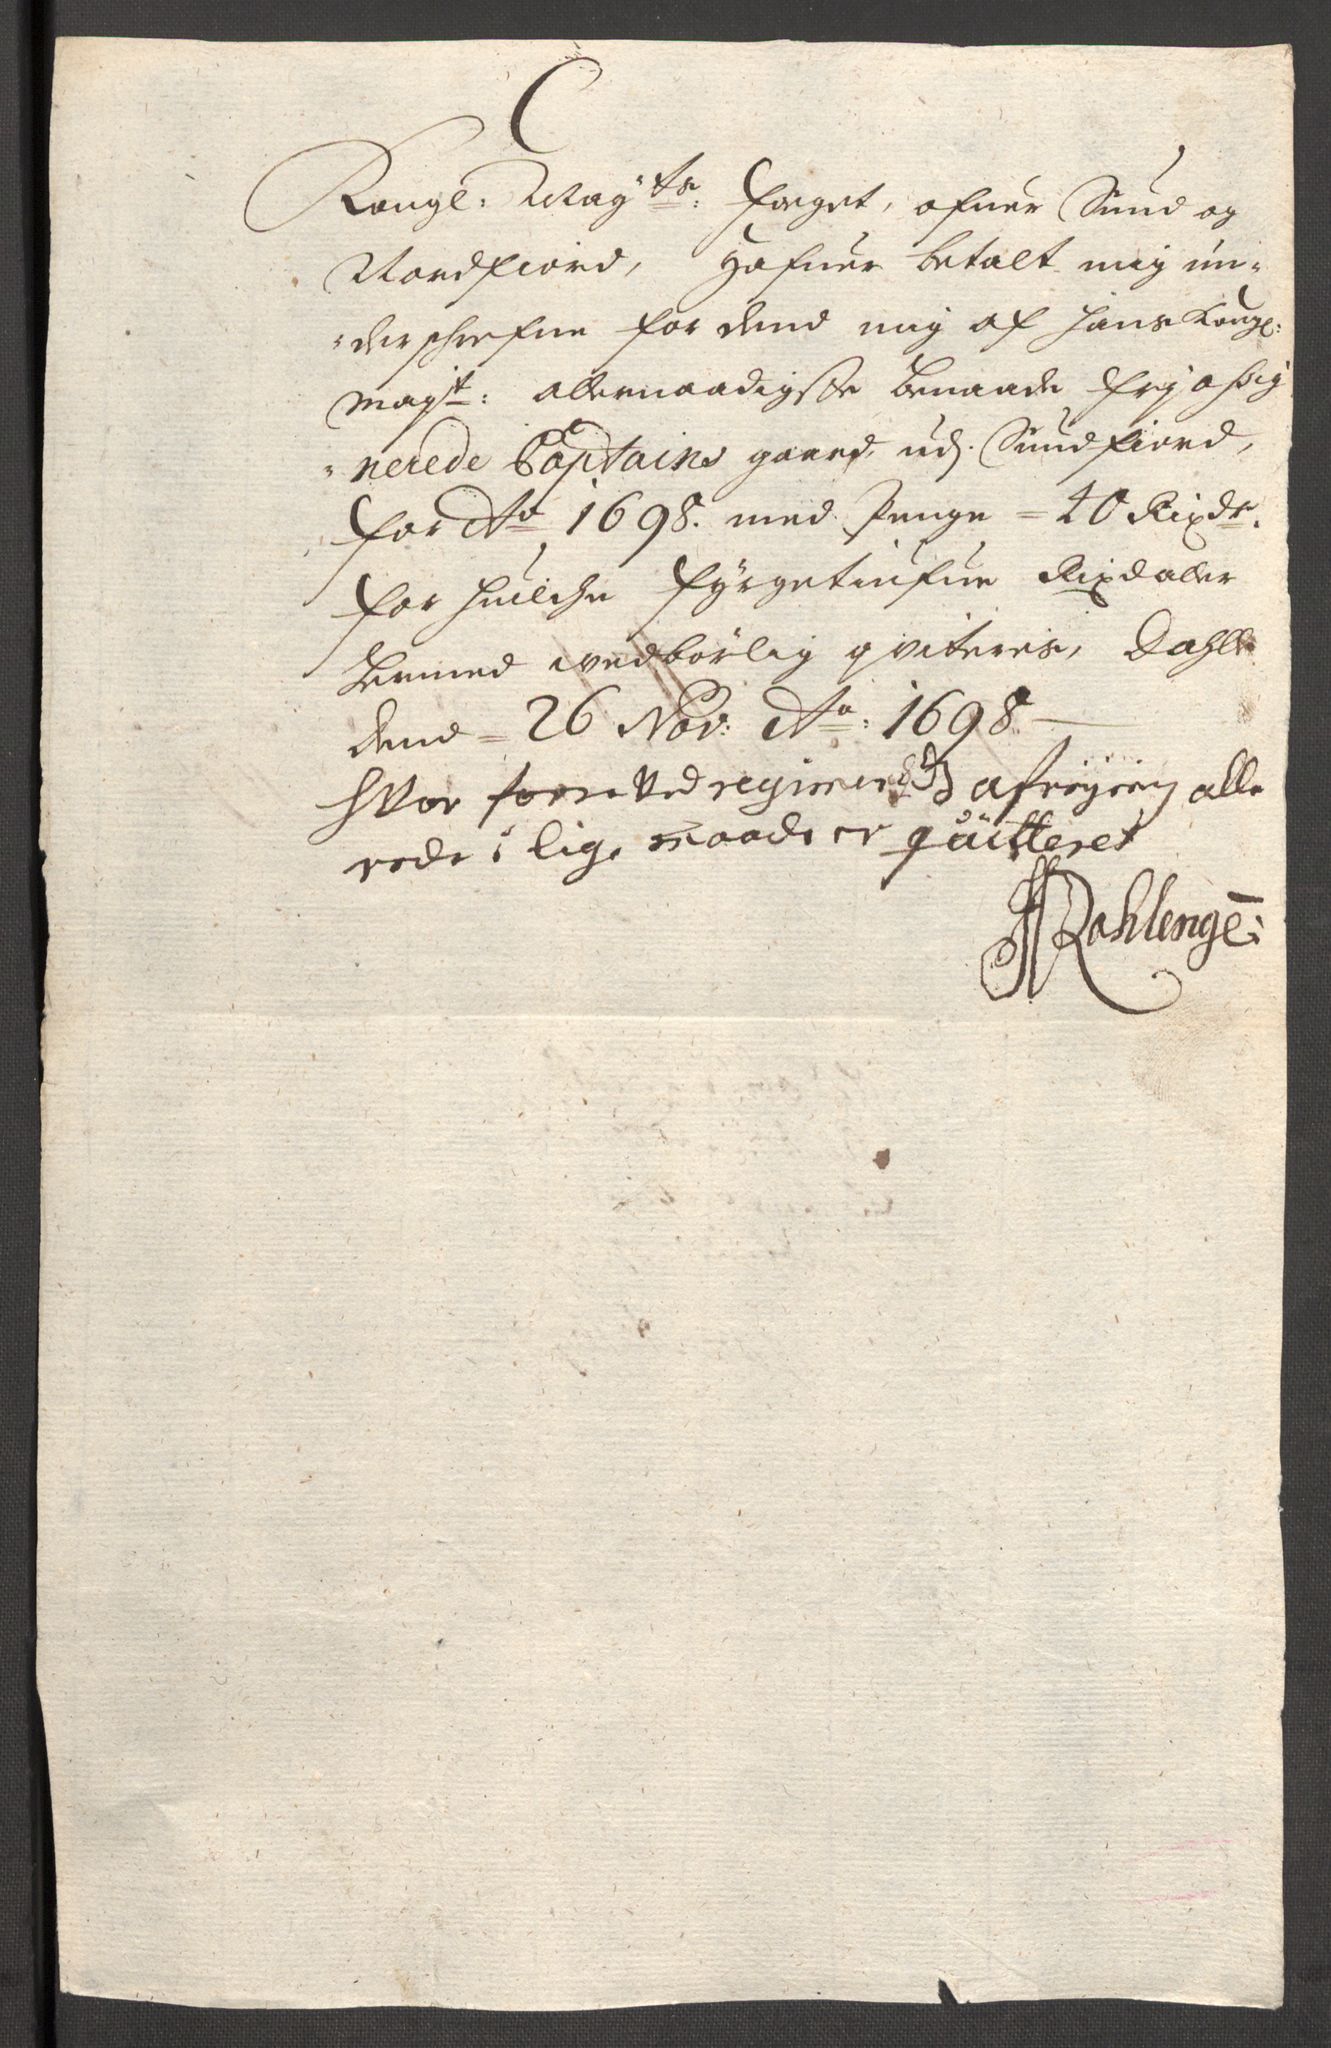 C
Kongl: Maÿ:ts: foget, ofuer Sund og
Nordfiord, Hafuer betalt mig un-
-derschrefne for dend mig af Hans Kongl:
Mayt: allernaadigste benaade frj assig
-nerede Captains gaard, udj Sundfiord,
for Ao 1698. med penge = 40 Rixdr.
for huilche fÿrgetiufue Rixdaller
hermed wedbörlig qviteris, Dahle
dend = 26 Nov: Ao: 1698
hvor forre ved regimend afreigning alle
rede i lige maade er quitteret
Kahlenge: